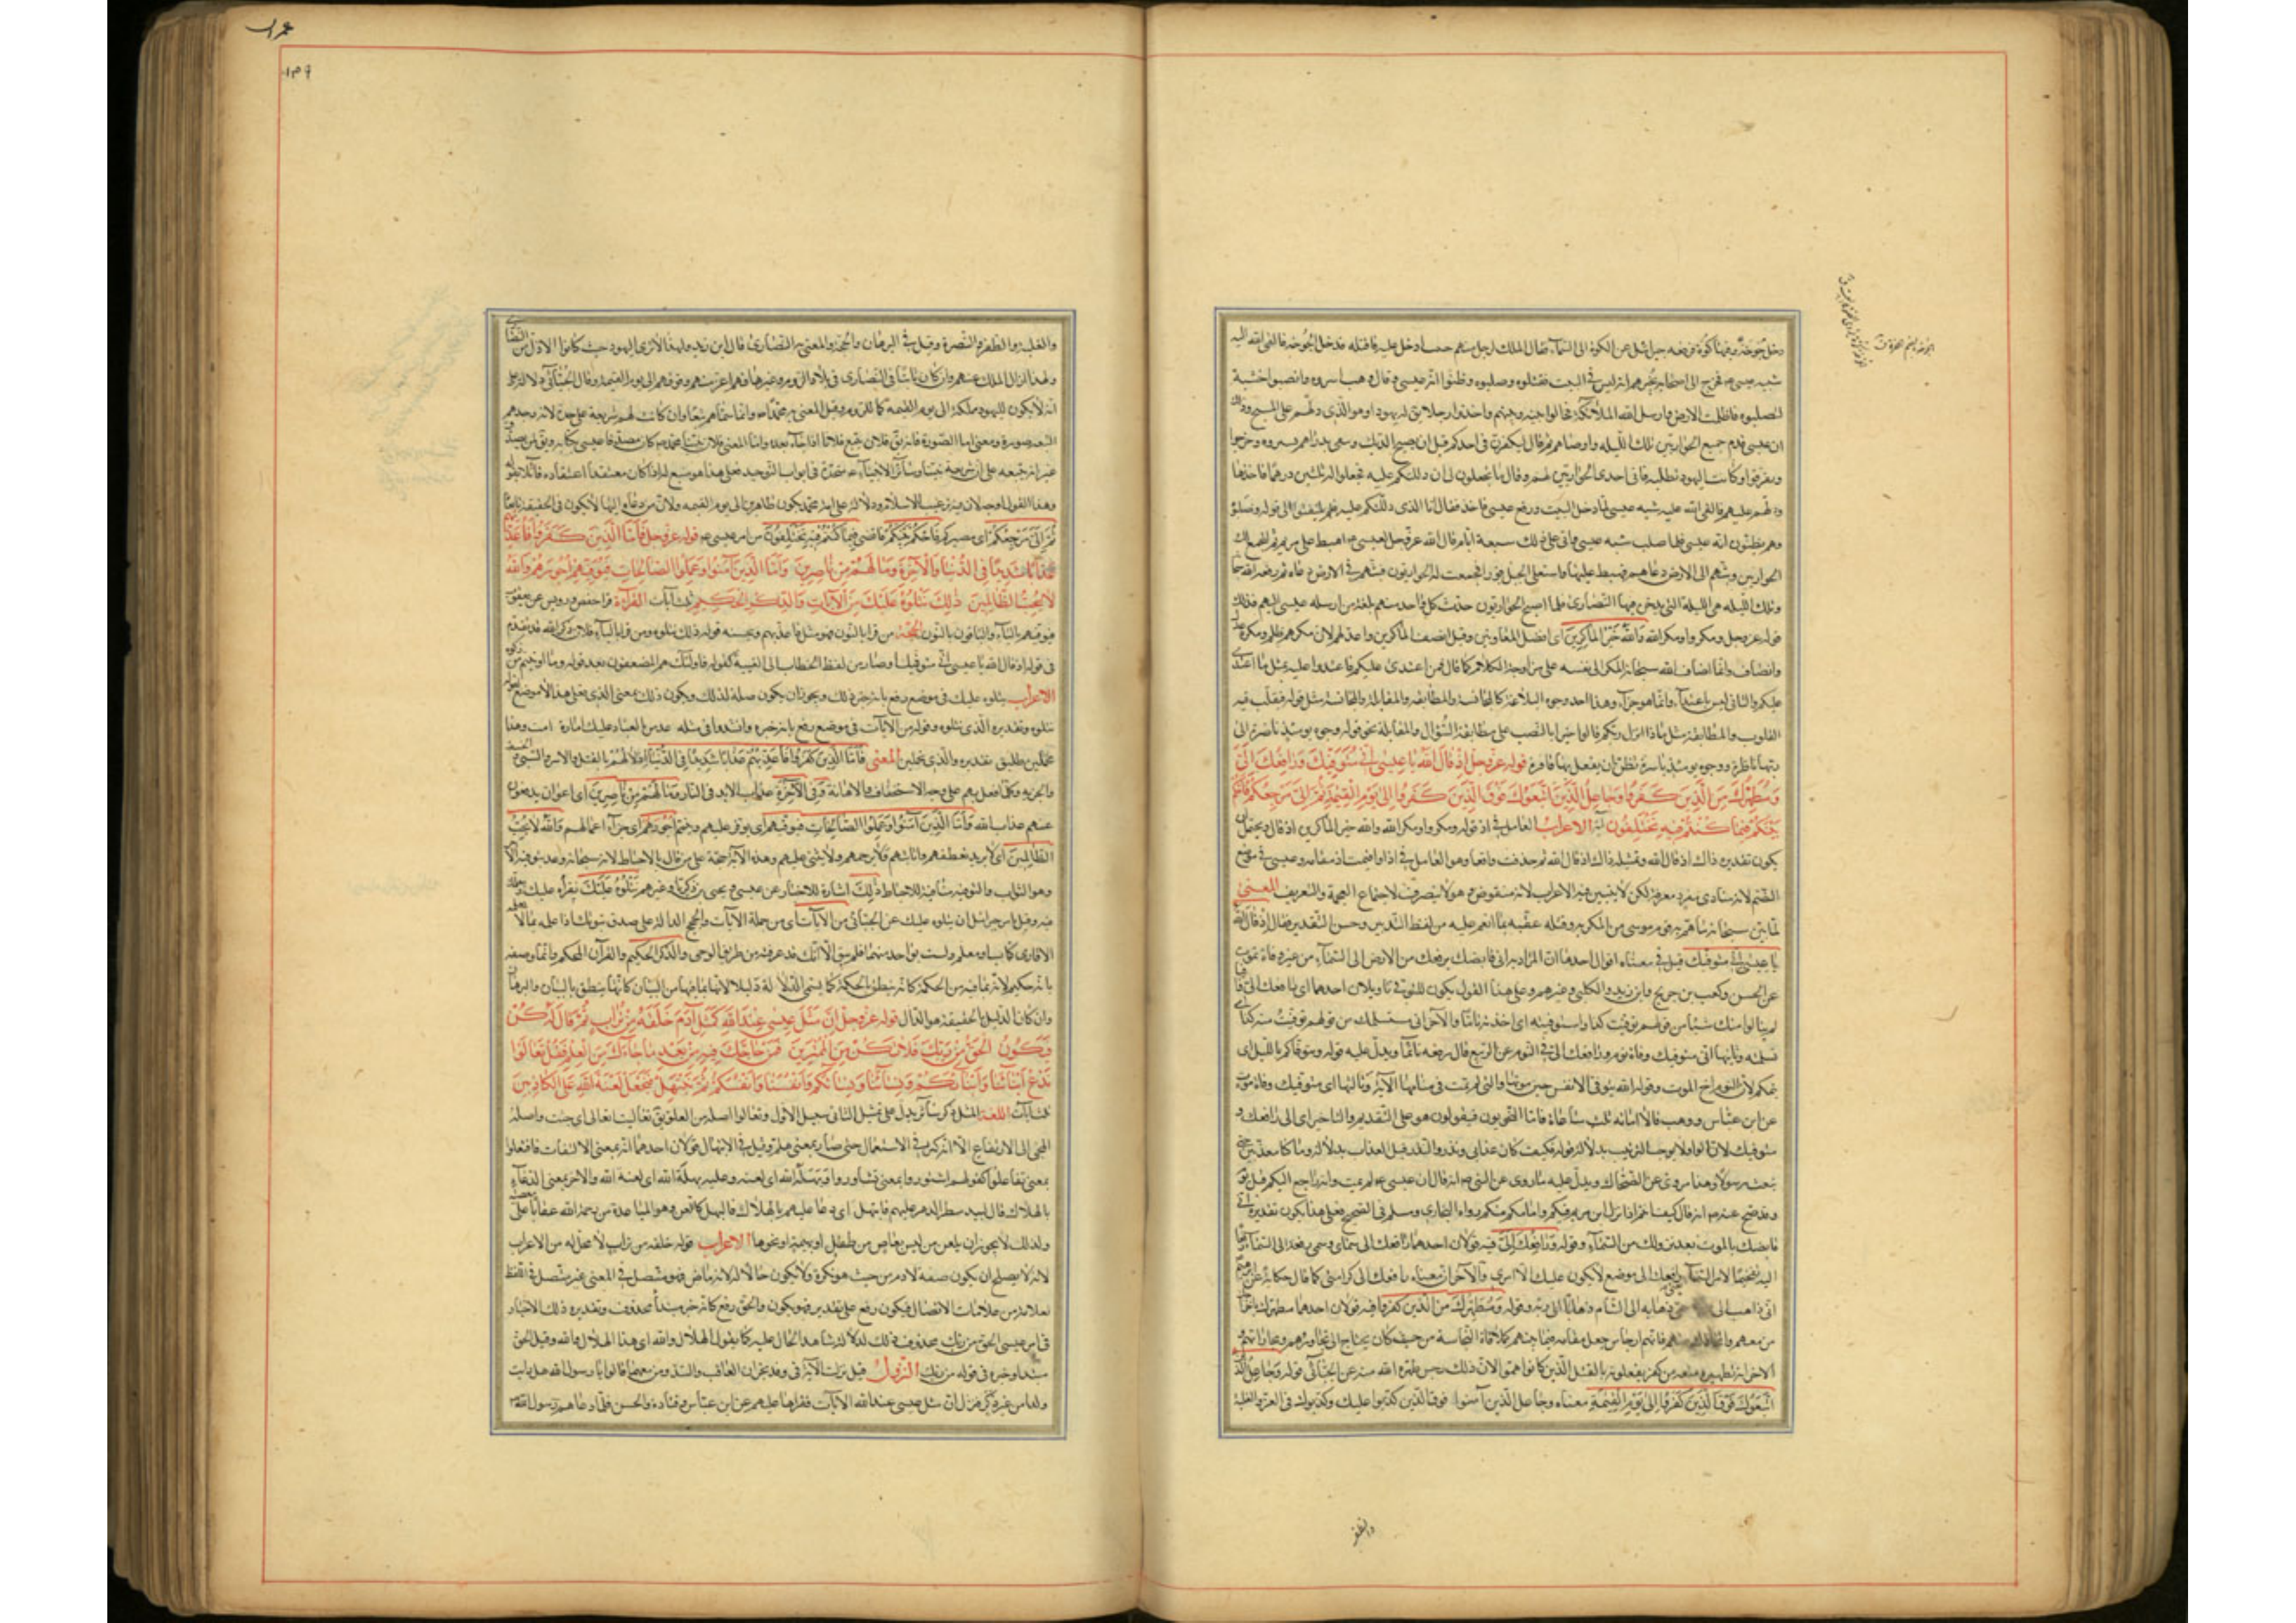 دخل خوخة وفيها كوة فرفعه جبرائيل من الكوة الى السماء فقال الملك لرجل منهم خبيث ادخل عليه فاقتله فدخل الخوخة فالقى الله اليه
شبه عيسى فخرج الى اصحابه يخبرهم انه ليس في البيت فقتلوه وصلبوه وظنوا انه عيسى وقال وهب اسروه وانصبوا خشبة
ليصلبوه فاظلمت الارض وارسل الله الملائكة فحالوا بينه وبينهم واخذوا رجلا يق له يهودا وهو الذي دلهم على المسيح وذلك
ان عيسى جمع الحواريين تلك الليلة واوصاهم ثم قال ليكفرن بي احدكم قبل ان يصيح الديك ويبيعني بدراهم يسيره فخرجوا
وتفرقوا وكانت اليهود تطلبه فاتى احد الحواريين اليهم وقال ما تجعلون لي ان دللتكم عليه فجعلوا له ثلثين درهما فاخذها
ودلهم عليه فالقى الله عليه شبه عيسى لما دخل البيت ورفع عيسى فاخذ فقال انا الذي دللتكم عليه فلم يلتفتوا الى قوله وصلبوه
وهم يظنون انه عيسى فلما صلب شبه عيسى واتى على ذلك سبعة ايام قال الله عز وجل لعيسى اهبط على مريم ثم لتجمع لك
الحواريين وبثهم في الارض دعاة فهبط عليها واشتعل الجبل نورا فجمعت له الحواريون فبثهم في الارض دعاة ثم رفعه الله
وتلك الليلة هي الليلة التي يدخن فيها النصارى فلما اصبح الحواريون حدث كل واحد منهم بلغة من ارسله عيسى اليهم فذلك
قوله عز وجل ومكروا ومكر الله والله خير الماكرين اى افضل المعاونين وقيل انصف الماكرين واعدلهم لان مكرهم ظلم ومكره عدل
وانصاف وانما اضاف الله سبحانه المكر الى نفسه على مزاوجة الكلام كما قال فمن اعتدى عليكم فاعتدوا عليه بمثل ما اعتدى
عليكم والثاني ليس باعتداء وانما هو جزاء وهذا احد وجوه البلاغة كالمجانسة والمطابقة والمقابلة فالمجانسة مثل قوله تتقلب فيه
القلوب والمطابقة مثل ماذا انزل ربكم قالوا خيرا بالنصب على مطابقة السؤال والمقابلة نحو قوله وجوه يومئذ ناضرة الى
ربها ناظرة ووجوه يومئذ باسرة تظن ان يفعل بها فاقرة قوله عز وجل اذ قال الله يا عيسى اني متوفيك ورافعك الي
ومطهرك من الذين كفروا وجاعل الذين اتبعوك فوق الذين كفروا الى يوم القيمة ثم الي مرجعكم فاحكم
بينكم فيما كنتم فيه تختلفون آية الاعراب العامل في اذ قوله ومكروا ومكر الله والله خير الماكرين اذ قال ويحتمل ان
يكون تقديره ذاك اذ قال الله ومثله ذاك اذ قال الله ثم حذف واقعا وهو العامل في اذ واقيمت اذ مقامه وعيسى في موضع
الضم لانه منادى مفرد معرفة لكن لا يتبين فيه الاعراب لانه منقوص وهو لا ينصرف لاجتماع العجمة والتعريف المعنى
لما بين سبحانه ما هم به قوم عيسى من المكر به وقتله عقبه بما انعم عليه من لطف التدبير وحسن التقدير فقال اذ قال الله
يا عيسى اني متوفيك قيل في معناه اقوال احدها ان المراد به اني قابضك برفعك من الارض الى السماء من غير وفاة بموت
عن الحسن وكعب وابن جريج وابن زيد والكلبي وغيرهم وعلى هذا القول يكون للمتوفى تاويلان احدهما اني رافعك الي وافيا
لم ينالوا منك شيئا من قولهم توفيت كذا واستوفيته اى اخذته تاما والآخر اني متسلمك من قولهم توفيت منه كذا اى
تسلمته وثانيها اني متوفيك وفاة نوم ورافعك الي في النوم عن الربيع قال رفعه نائما ويدل عليه قوله وهو الذي يتوفاكم بالليل اى
ينيمكم لان النوم اخ الموت وقوله الله يتوفى الانفس حين موتها والتي لم تمت في منامها الآية وثالثها اني متوفيك وفاة موت
عن ابن عباس ووهب قالا اماته ثلث ساعات فاما النحويون فيقولون هو على التقديم والتاخير اى اني رافعك و
متوفيك لان الواو لا يوجب الترتيب بدلالة قوله فكيف كان عذابي ونذر والنذر قبل العذاب بدلالة وما كنا معذبين حتى
نبعث رسولا وهذا مروي عن الضحاك ويدل عليه ما روي عن النبي انه قال ان عيسى لم يمت وانه راجع اليكم قبل يوم
وقد صح عنه انه قال كيف انتم اذا نزل ابن مريم فيكم وامامكم منكم رواه البخاري ومسلم في الصحيح فعلى هذا يكون تقديره اني
قابضك بالموت بعد نزولك من السماء وقوله ورافعك الي فيه قولان احدهما رافعك الى سمائي وسمي رفعه الى السماء رفعا
اليه تفخيما لامر السماء رافعك الى موضع لا يكون عليك الا امرى والآخر ان معناه رافعك الى كرامتي كما قال حكاية عن ابرهيم
اني ذاهب الى ربي ذهابه الى الشام وقوله ومطهرك من الذين كفروا فيه قولان احدهما مطهرك باخراجك
من بينهم فانهم ارجاس جعل مقامه فيما بينهم كملاقاة النجاسة من حيث كان يحتاج الى مجاورتهم ومحاورتهم
الآخر ان تطهيره منعه من كفر يفعلونه بالقتل الذين كانوا هموا به لان ذلك رجس طهره الله منه عن الجبائي قوله وجاعل الذين
اتبعوك فوق الذين كفروا الى يوم القيمة معناه وجاعل الذين آمنوا فوق الذين كذبوا عليك وكذبوك في العز والغلبة
والظفر
عمران
١٣٩
والغلبة والظفر والنصرة وقيل في البرهان والحجة والمعنى به النصارى قال ابن زيد ولهذا لا ترى اليهود حيث كانوا الا اذل من النصارى
ولهذا ازال الملك عنهم وان كان ثابتا في النصارى في بلاد الروم وغيرها فهم اعز منهم وفوقهم الى يوم القيمة وقال الجبائي فيه دلالة على
انه لا يكون لليهود مملكة الى يوم القيمة كما للروم وقيل المعني به امة محمد وانما سماهم تبعا وان كانت لهم شريعة على حدة لانه وجد فيهم
التبعية صورة ومعنى اما الصورة فانه يق فلان يتبع فلانا اذا جاء بعده واما المعنى فلان نبينا محمد كان مصدقا لعيسى وكتابه ويق لمن يصدق
غيره انه يتبعه على ان شريعة نبينا وسائر الانبياء متحدة في ابواب التوحيد فعلى هذا هو متبع له اذ كان معتقدا اعتقاده قائلا بقوله
وهذا القول اوجه لان فيه ترغيبا في الاسلام ودلالة على ان امة محمد يكونون ظاهرين الى يوم القيمه ولان من دعاه الها لا يكون في الحقيقة تابعا
ثم الي مرجعكم اى مصيركم فاحكم بينكم فاقضي فيما كنتم فيه تختلفون من امر عيسى قوله عز وجل فاما الذين كفروا فاعذبهم
عذابا شديدا في الدنيا والآخرة وما لهم من ناصرين واما الذين آمنوا وعملوا الصالحات فيوفيهم اجورهم والله
لا يحب الظالمين ذلك نتلوه عليك من الآيات والذكر الحكيم ثلث آيات القراءة قرا حفص ورويس عن يعقوب
فيوفيهم بالياء والباقون بالنون الحجة من قرا بالنون فهو مثل فاعذبهم ويحسنه قوله ذلك نتلوه ومن قرا بالياء فلان ذكر الله قد تقدم
في قوله اذ قال الله يا عيسى اني متوفيك وصار من لفظ الخطاب الى الغيبة كقوله فاولئك هم المضعفون بعد قوله وما آتيتم من زكوة
الاعراب نتلوه عليك في موضع رفع بانه خبر ذلك ويجوز ان يكون صلة لذلك ويكون ذلك بمعنى الذي فعلى هذا لا موضع لقوله
نتلوه وتقديره الذي نتلوه وقوله من الآيات في موضع رفع بانه خبره وانشدوا في مثله عدس ما لعباد عليك امارة امنت وهذا
تحملين طليق تقديره والذي تحملين المعنى فاما الذين كفروا فاعذبهم عذابا شديدا في الدنيا اذلالهم بالقتل والاسر والسبي والخسف
والجزية وكلما فعل بهم على وجه الاستخفاف والاهانة وفي الآخرة عذاب الابد في النار وما لهم من ناصرين اى اعوان يدفعون
عنهم عذاب الله واما الذين آمنوا وعملوا الصالحات فيوفيهم اى يوفر عليهم ويتمم اجورهم اى جزاء اعمالهم والله لا يحب
الظالمين اى لا يريد تعظيمهم واثابتهم ولا يرحمهم ولا يثني عليهم وهذه الآية حجة على من قال بالاحباط لانه سبحانه وعد بتوفية الاجر
وهو الثواب والتوفية منافية للاحباط ذلك اشارة الى الاخبار عن عيسى ويحيى وزكريا وغيرهم نتلوه عليك نقرأه عليك
وقيل نامر جبرائيل ان يتلوه عليك عن الجبائي من الآيات اى من جملة الآيات والحجج الدالة على صدق نبوتك اذا علمه بما لا يعلمه
الا قارئ كتاب او معلم ولست بواحد منهما فلم يبق الا انك قد عرفته من طريق الوحي والذكر الحكيم والقرآن المحكم وانما وصفه
بانه حكيم لانه بما فيه من الحكمة كانه ينطق بالحكمة كما يسمى الدلالة دليلا لانها بما فيها من البيان كانها ينطق بالبيان والبرهان
وان كان الدليل بالحقيقة هو الدال قوله عز وجل ان مثل عيسى عند الله كمثل آدم خلقه من تراب ثم قال له كن
فيكون الحق من ربك فلا تكن من الممترين فمن حاجك فيه من بعد ما جاءك من العلم فقل تعالوا
ندع ابناءنا وابناءكم ونساءنا ونساءكم وانفسنا وانفسكم ثم نبتهل فنجعل لعنة الله على الكاذبين
ثلث آيات اللغة المثل ذكر سائر يدل على تمثيل الثاني سبيل الاول وتعالوا اصله من العلو يق تعاليت اتعالى اى جئت واصله
المجيء الى الارتفاع الا انه كثر في الاستعمال حتى صار بمعنى هلم وقيل في الابتهال قولان احدهما انه بمعنى الالتعان افتعلوا
بمعنى تفاعلوا كقولهم اشتوروا بمعنى تشاوروا وبهله الله اى لعنه وعليه بهلة الله اى لعنة الله والآخر بمعنى الدعاء
بالهلاك قال لبيد نظر الدهر عليهم فابتهل اى دعا عليهم بالهلاك فالبهل كاللعن وهو المباعدة من رحمة الله عقابا على معصيته
ولذلك لا يجوز ان يلعن من ليس بعاص من طفل او بهيمة او نحوها الاعراب قوله خلقه من تراب لا محل له من الاعراب
لانه لا يصلح ان يكون صفة لآدم من حيث هو نكرة ولا يكون حالا له لانه ماض فهو متصل في المعنى غير متصل في اللفظ
بعلامة من علامات الاتصال فيكون رفع على تقدير فهو يكون والحق رفع كانه خبر مبتدأ محذوف وتقديره ذلك الاخبار
في امر عيسى الحق من ربك محذوف ذلك لدلالة شاهد الحال عليه كما يقول الهلال والله اى هذا الهلال والله وقيل الحق
مبتدا وخبره في قوله من ربك النزول قيل نزلت الآيات في وفد نجران العاقب والسيد ومن معهما قالوا يا رسول الله هل رايت
ولدا من غير ذكر فنزل ان مثل عيسى عند الله الآيات فقراها عليهم عن ابن عباس وقتادة والحسن فلما دعاهم رسول الله